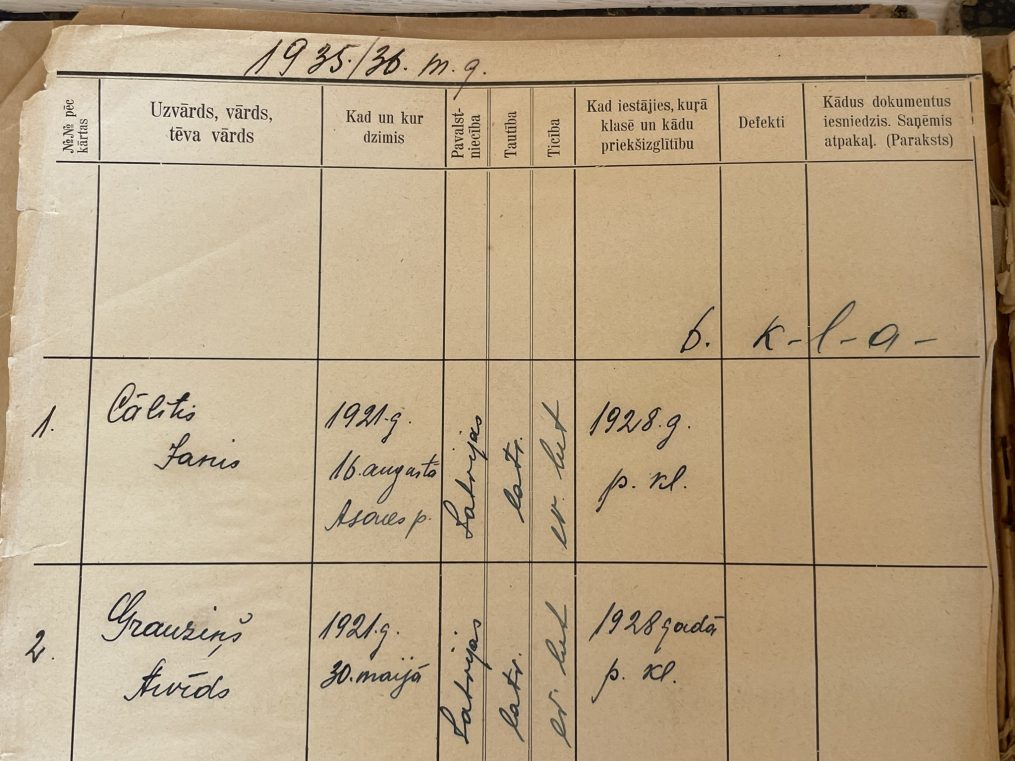 1935./36. m.g.
№№ pēc
kārtas
Uzvārds, vārds,
tēva vārds
Kad un kur
dzimis
Pavalst-
niecība
Tautība
Ticība
Kad iestājies, kuŗā
klasē un kādu
priekšizglītību
Defekti
Kādus dokumentus
iesniedzis. Saņēmis
atpakaļ. (Paraksts)
6. k-l-a-
1.
Cālītis
Janis
1921.g.
16. augustā
Asares p.
Latvijas
latv.
ev. lut
1928.g.
p. kl.
2.
Grauziņš
Arvīds
1921.g.
30. maijā
Latvijas
latv.
ev. lut
1928 gadā
p. kl.